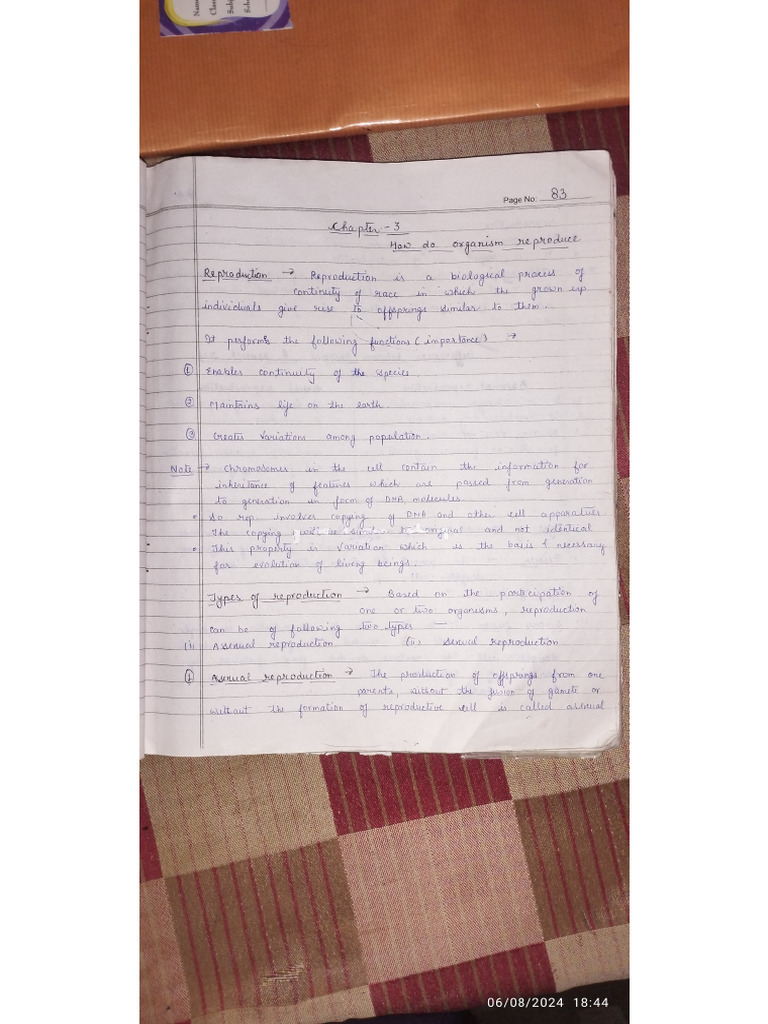 Name
Class
Subj
Scho
Page No. 83
Chapter - 3
How do organism reproduce
Reproduction → Reproduction is a biological process of
continuity of race in which the grown up
individuals give rise to offsprings similar to them.
It performs the following functions (importance) →
① Enables continuity of the species.
② Maintains life on the earth.
③ Creates variations among population.
Note → Chromosomes in the cell contain the information for
inheritance of features which are passed from generation
to generation in form of DNA molecules.
• So rep. involves copying of DNA and other cell apparatus
The copying will be similar to original and not identical
• This property is variation which is the basis & necessary
for evolution of living beings.
Types of reproduction → Based on the participation of
one or two organisms, reproduction
can be of following two types —
(i) Asexual reproduction (ii) sexual reproduction
① Asexual reproduction → The production of offsprings from one
parents, without the fusion of gamete or
without the formation of reproductive cell is called asexual
06/08/2024 18:44